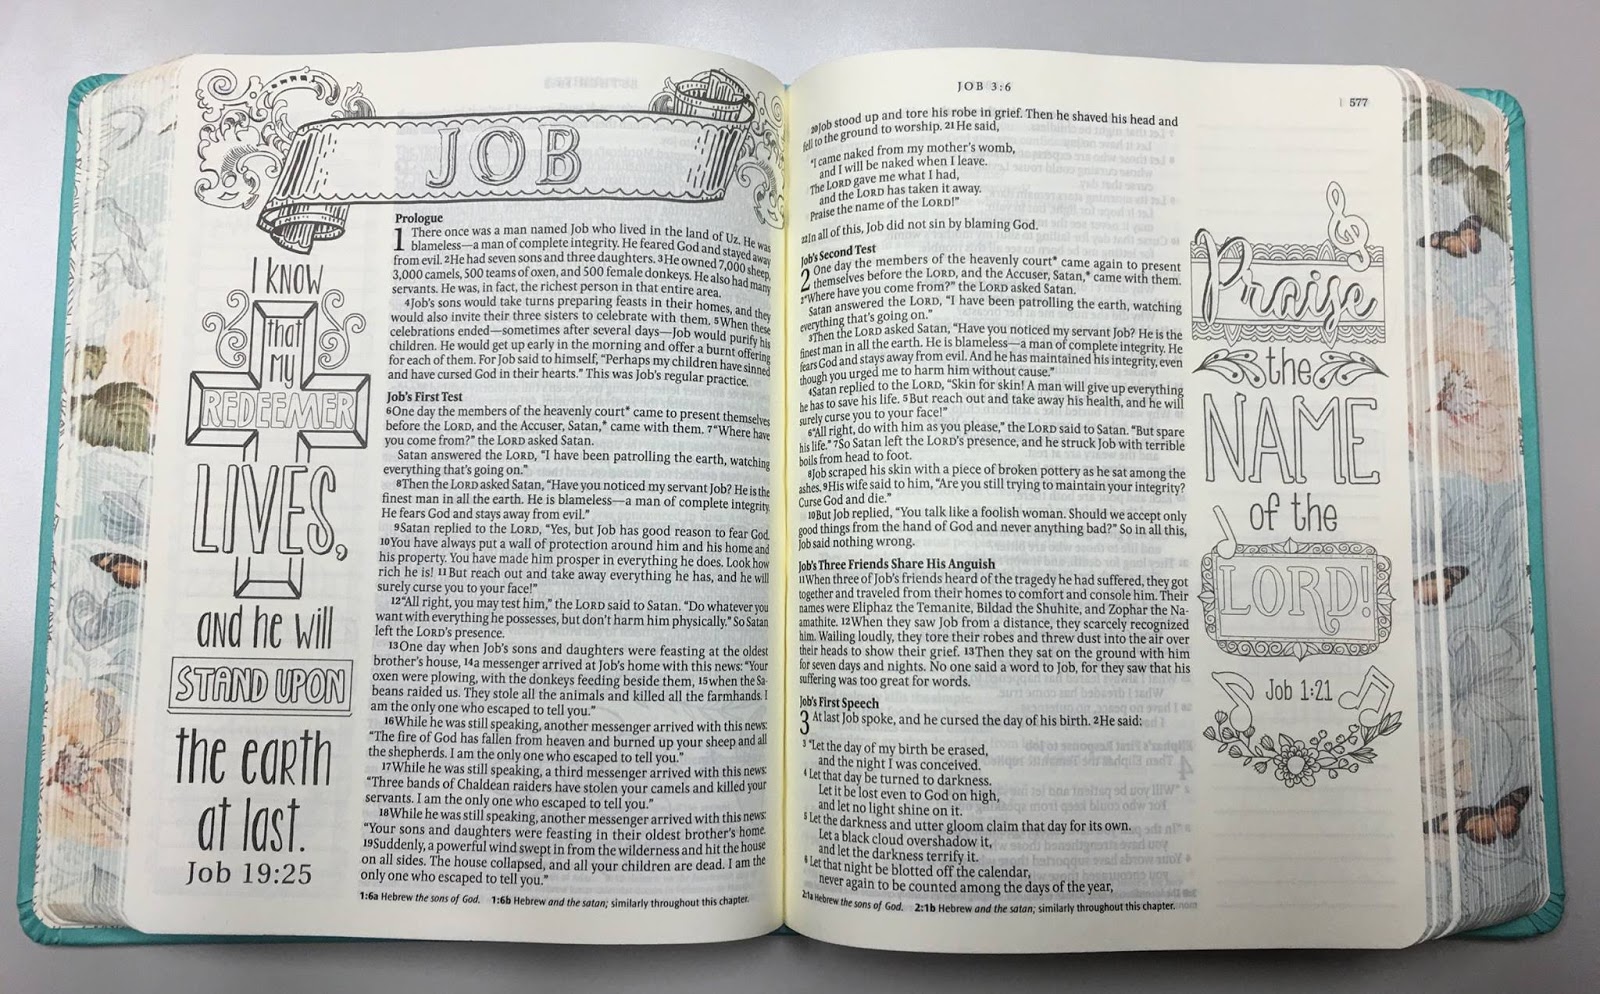 JOB
I KNOW
that
my
REDEEMER
LIVES,
and he will
STAND UPON
the earth
at last.
Job 19:25
Prologue
1 There once was a man named Job who lived in the land of Uz. He was
blameless—a man of complete integrity. He feared God and stayed away
from evil. 2He had seven sons and three daughters. 3He owned 7,000 sheep,
3,000 camels, 500 teams of oxen, and 500 female donkeys. He also had many
servants. He was, in fact, the richest person in that entire area.
4Job's sons would take turns preparing feasts in their homes, and they
would also invite their three sisters to celebrate with them. 5When these
celebrations ended—sometimes after several days—Job would purify his
children. He would get up early in the morning and offer a burnt offering
for each of them. For Job said to himself, “Perhaps my children have sinned
and have cursed God in their hearts.” This was Job's regular practice.
Job's First Test
6One day the members of the heavenly court* came to present themselves
before the LORD, and the Accuser, Satan,* came with them. 7“Where have
you come from?” the LORD asked Satan.
Satan answered the LORD, “I have been patrolling the earth, watching
everything that's going on.”
8Then the LORD asked Satan, “Have you noticed my servant Job? He is the
finest man in all the earth. He is blameless—a man of complete integrity.
He fears God and stays away from evil.”
9Satan replied to the LORD, “Yes, but Job has good reason to fear God.
10You have always put a wall of protection around him and his home and
his property. You have made him prosper in everything he does. Look how
rich he is! 11But reach out and take away everything he has, and he will
surely curse you to your face!”
12“All right, you may test him,” the LORD said to Satan. “Do whatever you
want with everything he possesses, but don't harm him physically.” So Satan
left the LORD's presence.
13One day when Job's sons and daughters were feasting at the oldest
brother's house, 14a messenger arrived at Job's home with this news: “Your
oxen were plowing, with the donkeys feeding beside them, 15when the Sa-
beans raided us. They stole all the animals and killed all the farmhands. I
am the only one who escaped to tell you.”
16While he was still speaking, another messenger arrived with this news:
“The fire of God has fallen from heaven and burned up your sheep and all
the shepherds. I am the only one who escaped to tell you.”
17While he was still speaking, a third messenger arrived with this news:
“Three bands of Chaldean raiders have stolen your camels and killed your
servants. I am the only one who escaped to tell you.”
18While he was still speaking, another messenger arrived with this news:
“Your sons and daughters were feasting in their oldest brother's home.
19Suddenly, a powerful wind swept in from the wilderness and hit the house
on all sides. The house collapsed, and all your children are dead. I am the
only one who escaped to tell you.”
1:6a Hebrew the sons of God. 1:6b Hebrew and the satan; similarly throughout this chapter.
JOB 3:6
577
20Job stood up and tore his robe in grief. Then he shaved his head and
fell to the ground to worship. 21He said,
“I came naked from my mother's womb,
and I will be naked when I leave.
The LORD gave me what I had,
and the LORD has taken it away.
Praise the name of the LORD!”
22In all of this, Job did not sin by blaming God.
Job's Second Test
2 One day the members of the heavenly court* came again to present
themselves before the LORD, and the Accuser, Satan,* came with them.
2“Where have you come from?” the LORD asked Satan.
Satan answered the LORD, “I have been patrolling the earth, watching
everything that's going on.”
3Then the LORD asked Satan, “Have you noticed my servant Job? He is the
finest man in all the earth. He is blameless—a man of complete integrity. He
fears God and stays away from evil. And he has maintained his integrity, even
though you urged me to harm him without cause.”
4Satan replied to the LORD, “Skin for skin! A man will give up everything
he has to save his life. 5But reach out and take away his health, and he will
surely curse you to your face!”
6“All right, do with him as you please,” the LORD said to Satan. “But spare
his life.” 7So Satan left the LORD's presence, and he struck Job with terrible
boils from head to foot.
8Job scraped his skin with a piece of broken pottery as he sat among the
ashes. 9His wife said to him, “Are you still trying to maintain your integrity?
Curse God and die.”
10But Job replied, “You talk like a foolish woman. Should we accept only
good things from the hand of God and never anything bad?” So in all this,
Job said nothing wrong.
Job's Three Friends Share His Anguish
11When three of Job's friends heard of the tragedy he had suffered, they got
together and traveled from their homes to comfort and console him. Their
names were Eliphaz the Temanite, Bildad the Shuhite, and Zophar the Na-
amathite. 12When they saw Job from a distance, they scarcely recognized
him. Wailing loudly, they tore their robes and threw dust into the air over
their heads to show their grief. 13Then they sat on the ground with him
for seven days and nights. No one said a word to Job, for they saw that his
suffering was too great for words.
Job's First Speech
3 At last Job spoke, and he cursed the day of his birth. 2He said:
3 “Let the day of my birth be erased,
and the night I was conceived.
4 Let that day be turned to darkness.
Let it be lost even to God on high,
and let no light shine on it.
5 Let the darkness and utter gloom claim that day for its own.
Let a black cloud overshadow it,
and let the darkness terrify it.
6 Let that night be blotted off the calendar,
never again to be counted among the days of the year,
2:1a Hebrew the sons of God. 2:1b Hebrew and the satan; similarly throughout this chapter.
Praise
the
NAME
of the
LORD!
Job 1:21